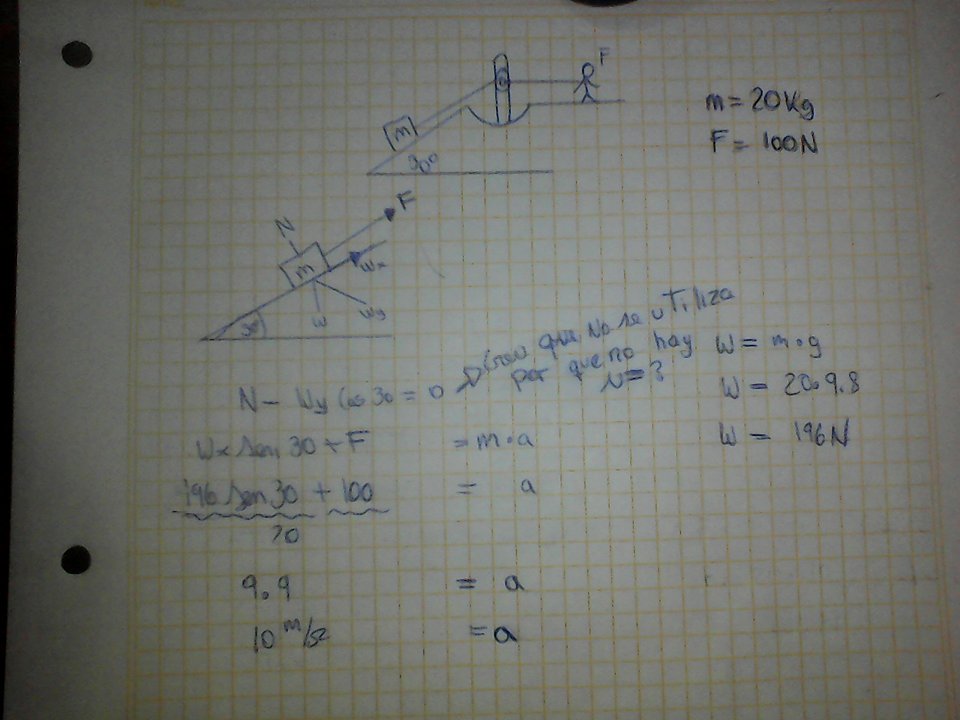 F
m = 20Kg
F = 100N
m
30°
F
N
m
Wx
30°
W
Wy
N - Wy Cos 30 = 0 Creo que No se uTiliza
por que no hay
N = ?
W = m·g
W = 20·9.8
W = 196N
Wx Sen 30 + F = m·a
196 Sen 30 + 100 = a
20
9.9 = a
10 m/s2 = a